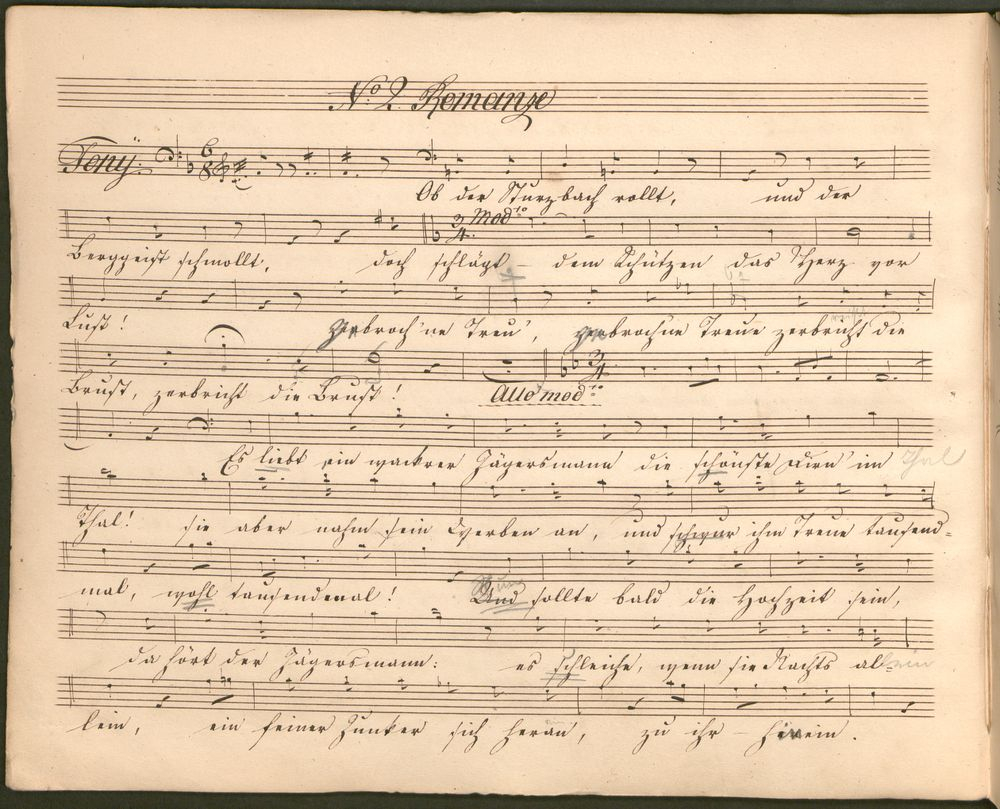 No. 2. Romanze
Tony.
Ob der Sturzbach rollt, und der
Mod:to
Berggeist schmollt, doch schlägt – dem Schützen das Herz vor
Lust! Zerbroch'ne Treu', zerbrochne Treue zerbricht die
Brust, zerbricht die Brust! Allo mod:to
Es liebt ein wackrer Jägersmann die schönste Dirn' im Thal
Thal! sie aber nahm sein Werben an, und schwur ihm Treue tausend=
mal, wohl tausendmal! Und sollte bald die Hochzeit sein,
da hört der Jägersmann: es schleiche, wenn sie Nachts al=lein
lein, ein feiner Junker sich heran, zu ihr – hinein.